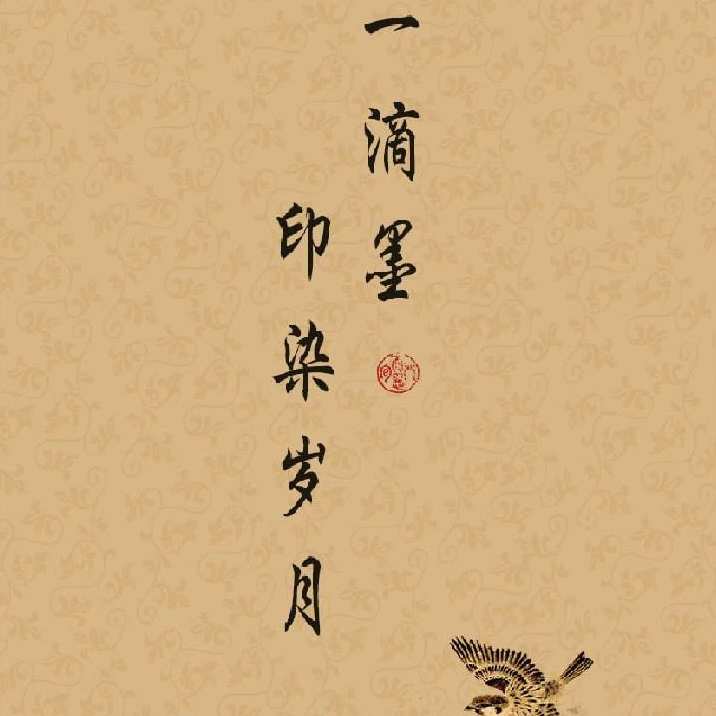 一滴墨
印染岁月